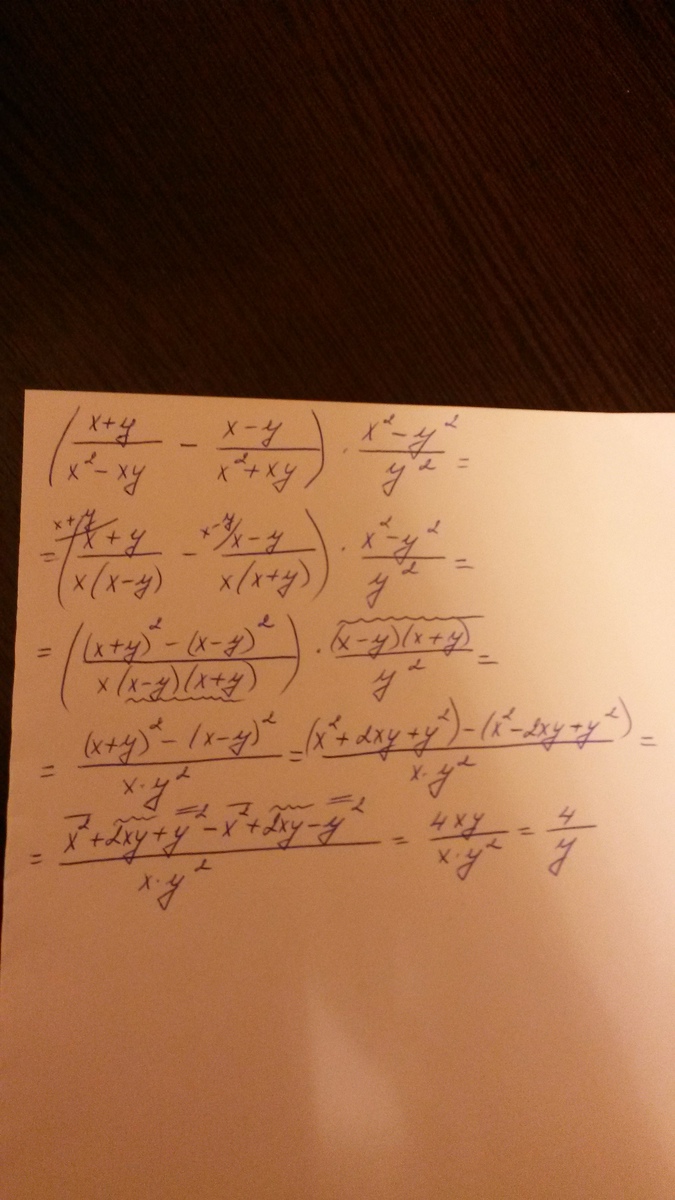 ((x+y)/(x²-xy) - (x-y)/(x²+xy)) · (x²-y²)/y² =
= (^(x+y)/ (x+y)/(x(x-y)) - ^(x-y)/ (x-y)/(x(x+y))) · (x²-y²)/y² =
= (((x+y)²-(x-y)²)/(x(x-y)(x+y))) · ((x-y)(x+y))/y² =
= ((x+y)²-(x-y)²)/(x·y²) = ((x²+2xy+y²)-(x²-2xy+y²))/(x·y²) =
= (x²+2xy+y²-x²+2xy-y²)/(x·y²) = 4xy/(x·y²) = 4/y